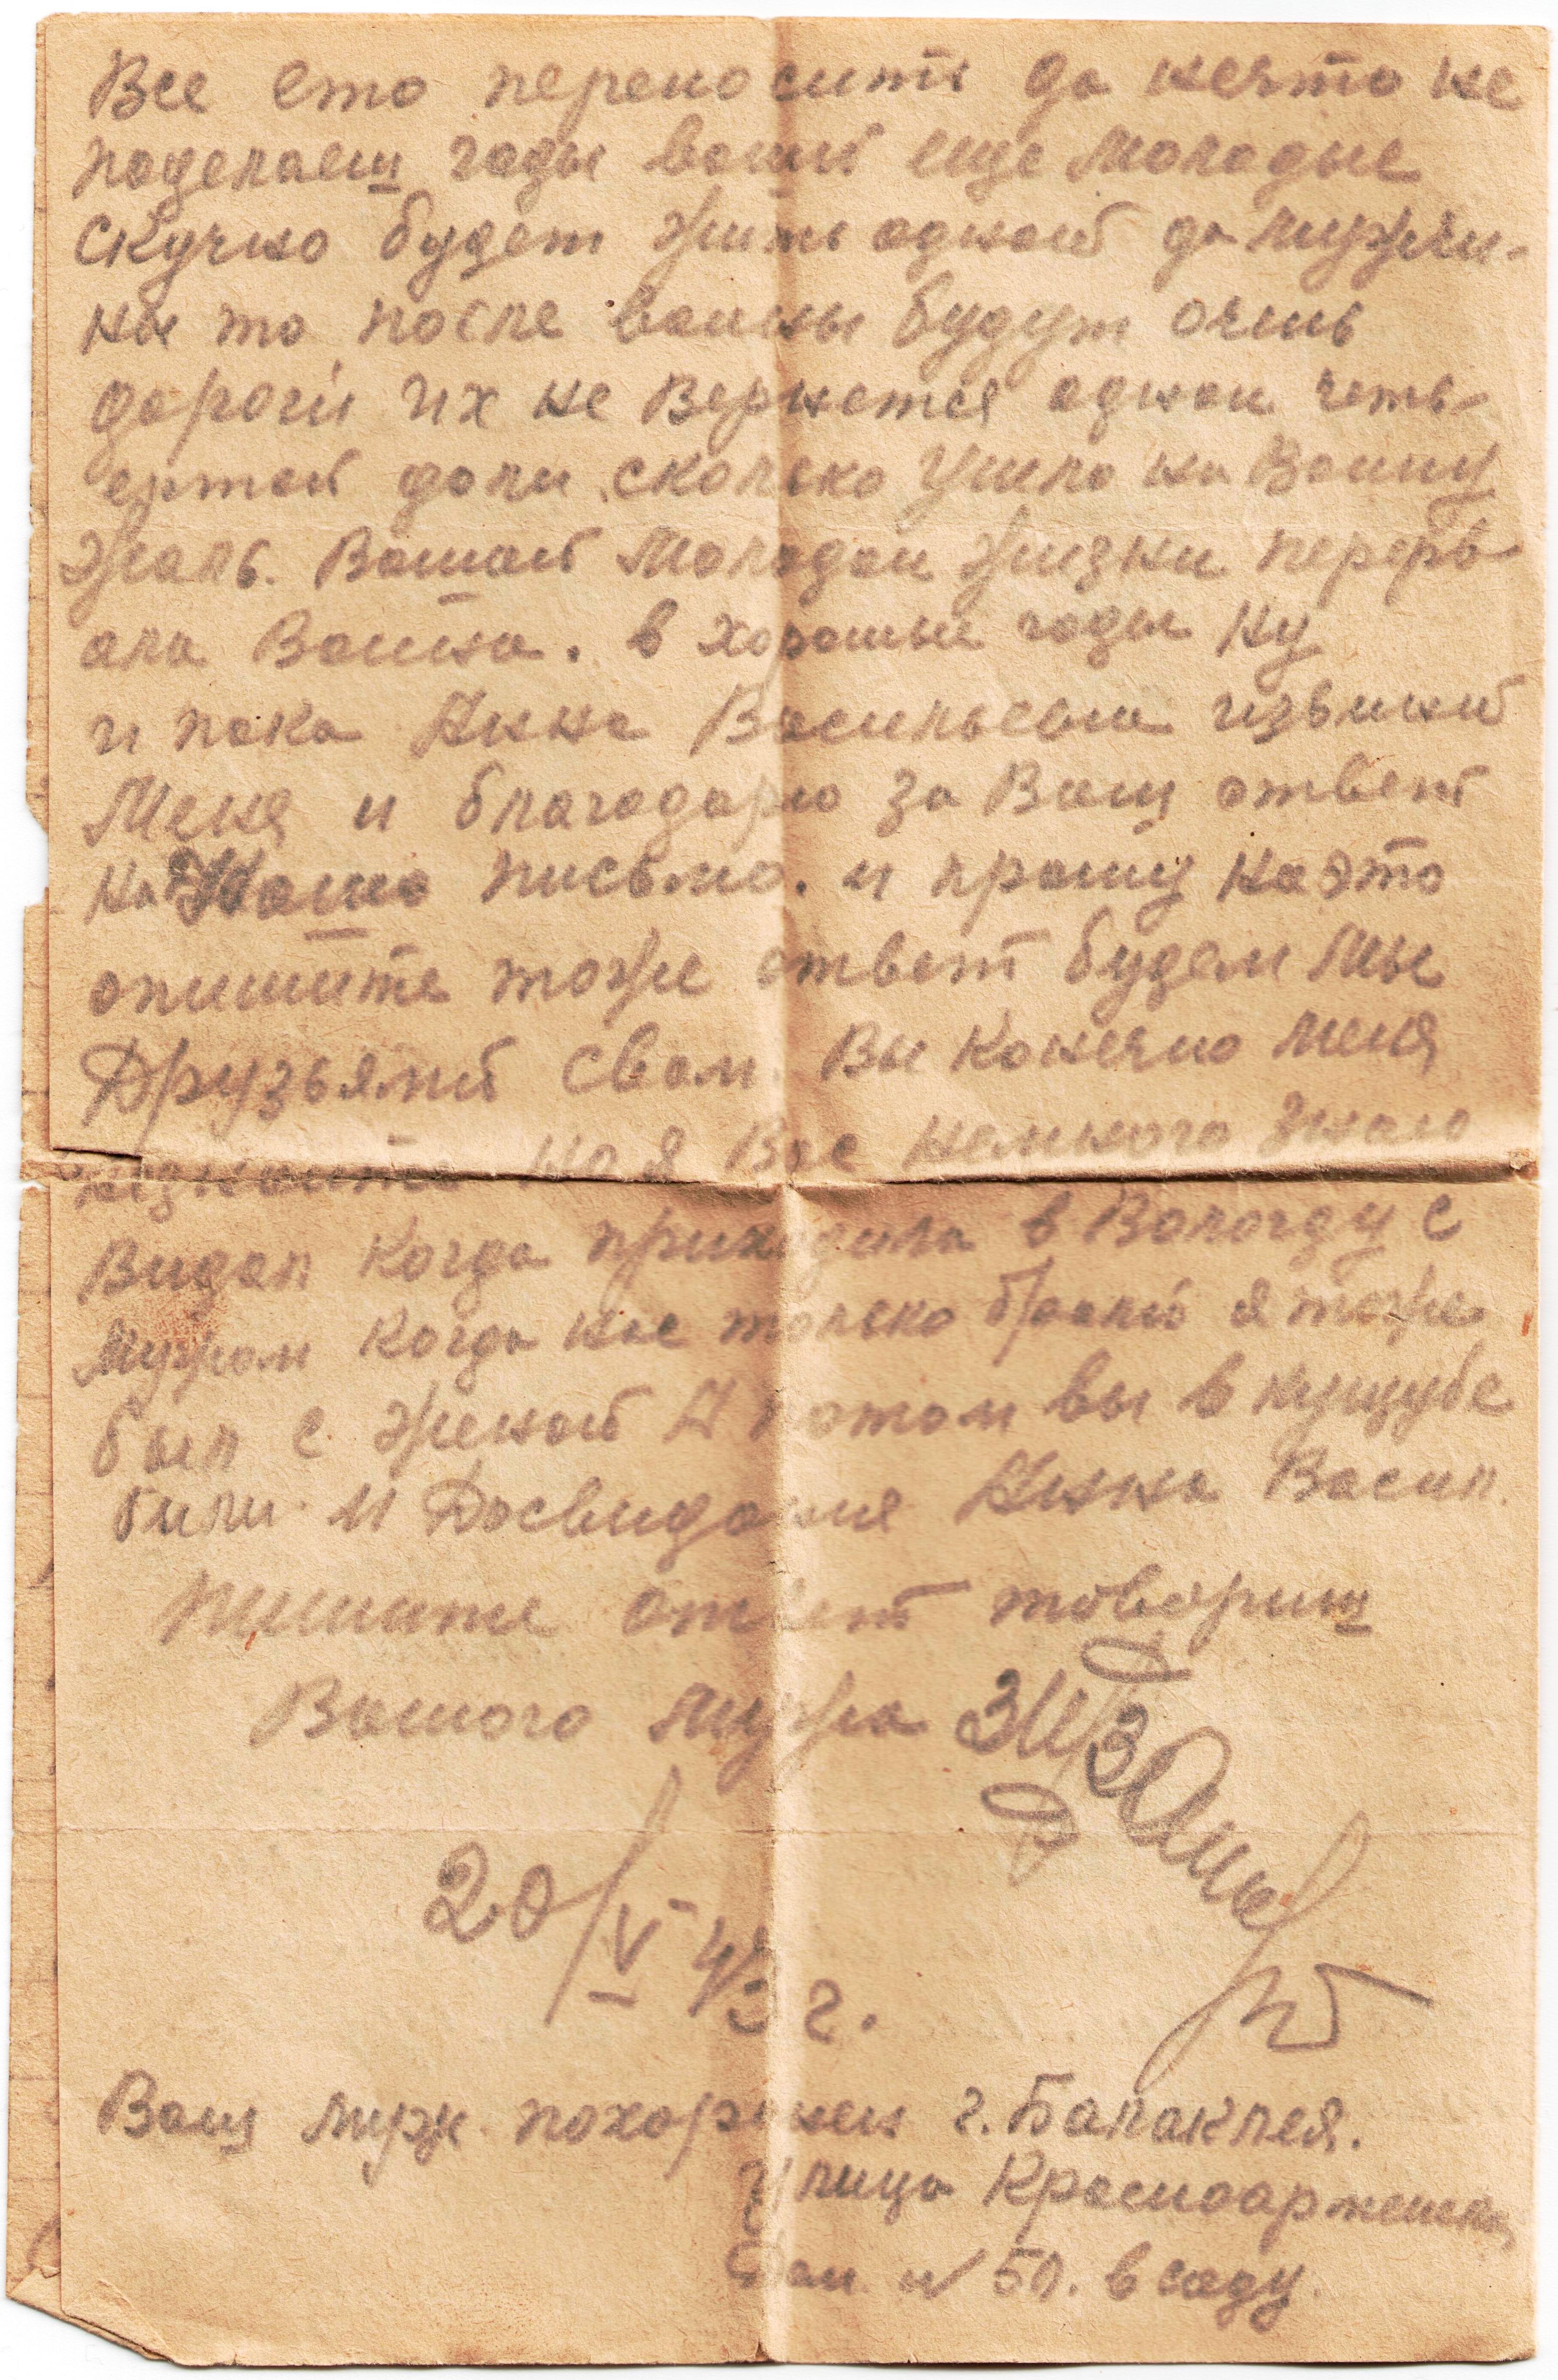 Все ето переносить да нечто не
поделаеш годы вашы еще молодые
скучно будет жить одной да мужчи-
ны то после воины будут очень
дороги их не вернется однои четь-
ертой доли сколько ушло на воину
Жаль. Вашай молодои жизни перерв
ала Воина. в хорошые годы ну
и пока Анна Васильевна извиний
Меня и благодарю за Ваш ответ
на Нашо письмо. и прошу на это
опишите тоже ответ будем мы
Друзьямй свои. Вы конечно меня
но я Вас немного знаю
Видел когда приходила в Вологду с
мужом когда нас только брали я тоже
был с женой А потом вы в кущубе
били И Досвидания Анна Васил.
пишите ответ товориш
Вашого мужа
20/V 43 г.
Ваш муж похоронен г. Балаклея.
Улица Красноармейская
Дом № 50. в саду.